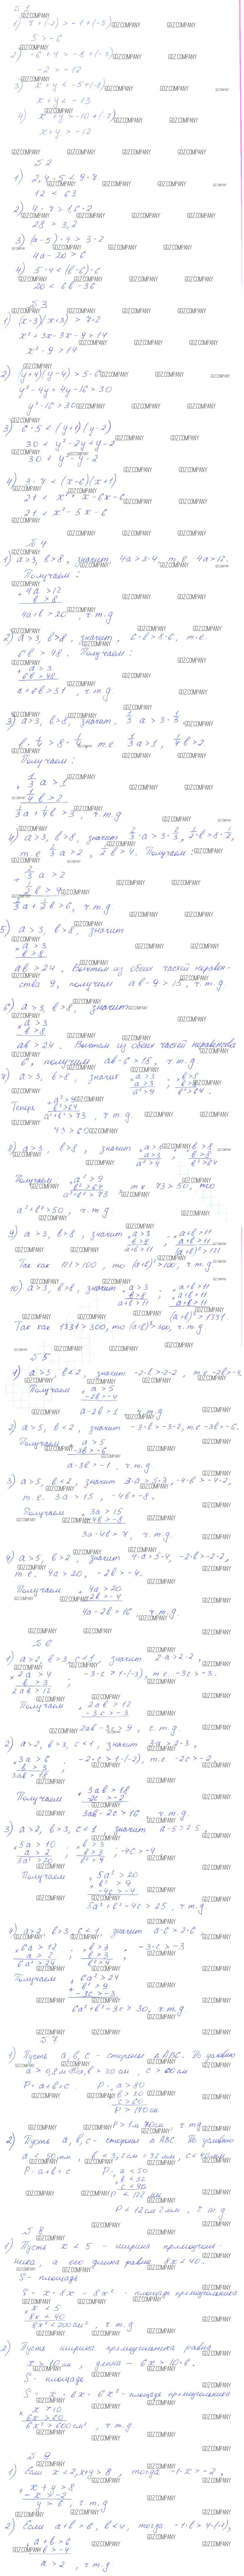 § 1
1) 7 + (-2) > -1 + (-5)
5 > -6
2) -6 + 4 > -8 + (-5)
-2 > -12
3) x + y < -5 + (-8)
x + y < -13
4) x + y > -10 + (-2)
x + y > -12
§ 2
1) 2,4 · 5 < 9 · 7
12 < 63
2) 4 · 7 > 1,6 · 2
28 > 3,2
3) (a - 5) · 4 > 3 · 2
4a - 20 > 6
4) 5 · 4 < (b - 6) · 6
20 < 6b - 36
§ 3
1) (x - 3)(x + 3) > 7 · 2
x² + 3x - 3x - 9 > 14
x² - 9 > 14
2) (y + 4)(y - 4) > 5 · 6
y² - 4y + 4y - 16 > 30
y² - 16 > 30
3) 6 · 5 < (y + 1)(y - 2)
30 < y² - 2y + y - 2
30 < y² - y - 2
4) 3 · 7 < (x - 6)(x + 1)
21 < x² + x - 6x - 6
21 < x² - 5x - 6
§ 4
1) a > 3, b > 8, значит 4a > 3 · 4 т. е. 4a > 12.
Получаем:
+ 4a > 12
b > 8
4a + b > 20, ч. т. д
2) a > 3, b > 8, значит, 6 · b > 8 · 6, т. е.
6b > 48. Получаем:
+ a > 3
6b > 48
a + 6b > 51, ч. т. д.
3) a > 3, b > 8, значит, 1/3 a > 3 · 1/3
b · 1/4 > 8 · 1/4, т. е. 1/3 a > 1, 1/4 b > 2.
Получаем:
+ 1/3 a > 1
1/4 b > 2
1/3 a + 1/4 b > 3, ч. т. д
4) a > 3, b > 8, значит 2/3 · a > 3 · 2/3, 1/2 · b > 8 · 1/2,
т. е. 2/3 a > 2, 1/2 b > 4. Получаем:
+ 2/3 a > 2
1/2 b > 4
2/3 a + 1/2 b > 6, ч. т. д.
5) a > 3, b > 8, значит
× a > 3
b > 8
ab > 24. Вычтем из обеих частей неравен-
ства 9, получим ab - 9 > 15, ч. т. д.
6) a > 3, b > 8, значит
× a > 3
b > 8
ab > 24. Вычтем из обеих частей неравенства
6, получим ab - 6 > 18, ч. т. д.
7) a > 3, b > 8, значит × a > 3 ; × b > 8
a > 3 b > 8
a² > 9 b² > 64.
Теперь + a² > 9
b² > 64
a² + b² > 73, ч. т. д.
73 > 60
8) a > 3, b > 8, значит × a > 3 ; × b > 8
a > 3 b > 8
a² > 9 b² > 64
Получаем + a² > 9
b² > 64
a² + b² > 73, т к 73 > 50, то
a² + b² > 50, ч. т. д
9) a > 3, b > 8, значит + a > 3 ; × a + b > 11
b > 8 a + b > 11
a + b > 11 (a + b)² > 121
Так как 121 > 100 то (a + b)² > 100, ч. т. д.
10) a > 3, b > 8, значит + a > 3 ; × a + b > 11
b > 8 a + b > 11
a + b > 11 a + b > 11
(a + b)³ > 1331
Так как 1331 > 300, то (a + b)³ > 300, ч. т. д.
§ 5
1) a > 5, b < 2, значит -2 · b > -2 · 2, т. е -2b > -4.
Получаем + a > 5
-2b > -4
a - 2b > 1 ч. т. д
2) a > 5, b < 2, значит -3 · b > -3 · 2, т. е -3b > -6.
Получаем + a > 5
-3b > -6
a - 3b > -1, ч. т. д.
3) a > 5, b < 2, значит 3 · a > 5 · 3, -4 · b > -4 · 2,
т. е. 3a > 15, -4b > -8.
Получаем + 3a > 15
-4b > -8
3a - 4b > 7, ч. т. д.
4) a > 5, b > 2, значит 4 · a > 5 · 4, -2 · b > -2 · 2,
т. е. 4a > 20, -2b > -4.
Получаем + 4a > 20
-2b > -4
4a - 2b > 16 ч. т. д.
§ 6
1) a > 2, b > 3, c < 1, значит 2a > 2 · 2,
× 2a > 4 ; -3 · c > 1 · (-3), т. е. -3c > -3.
b > 3
2ab > 12
Получаем + 2ab > 12
-3c > -3
2ab - 3c > 9, ч. т. д.
2) a > 2, b > 3, c < 1, значит 3a > 2 · 3,
× 3a > 6 ; -2 · c > 1 · (-2), т. е. -2c > -2
b > 3
3ab > 18
Получаем + 3ab > 18
-2c > -2
3ab - 2c > 16 ч. т. д.
3) a > 2, b > 3, c < 1 значит a · 5 > 2 · 5
× 5a > 10 ; × b > 3 ; -4c > -4
a > 2 b > 3
5a² > 20 b² > 9
Получаем + 5a² > 20
b² > 9
-4c > -4
5a² + b² - 4c > 25, ч. т. д.
4) a > 2, b > 3 c < 1 значит a · 6 > 2 · 6
× 6a > 12 ; × b > 3 ; -3 · c > -3
a > 2 b > 3
6a² > 24 b² > 9
Получаем + 6a² > 24
b² > 9
-3c > -3
6a² + b² - 3c > 30, ч. т. д.
§ 7
1) Пусть a, b, c - стороны △ ABC. По условию
P = a + b + c P > 170 см
P > 1 м 70 см ч. т. д.
2) Пусть a, b, c - стороны △ ABC По условию
a < 50 мм, b < 3,2 см = 32 мм, c < 40 мм
P = a + b + c P: + a < 50
b < 32
c < 40
P < 122 мм
P < 12 см 2 мм, ч т д
§ 8
1) Пусть x < 5 - ширина прямоуголь-
ника, а его длина равна 8x < 40.
S - площадь
S = x · 8x = 8x² - площадь прямоугольника
× x < 5
8x < 40
8x² < 200 см², ч. т. д.
2) Пусть ширина прямоугольника равна
x > 10 см, длина - 6x > 10 · 6.
S - площадь
S = x · 6x = 6x² - площадь прямоугольника
× x > 10
6x > 60
6x² > 600 см², ч. т. д.
§ 9
1) Если x < 2, x + y > 8, тогда -1 · x > -2,
+ x + y > 8
-x > -2
y > 6, ч. т. д.
2) Если a + b > 6, b < 4, тогда -1 · b > 4 · (-1),
+ a + b > 6
-b > -4
a > 2, ч. т. д.
GDZ.COMPANY